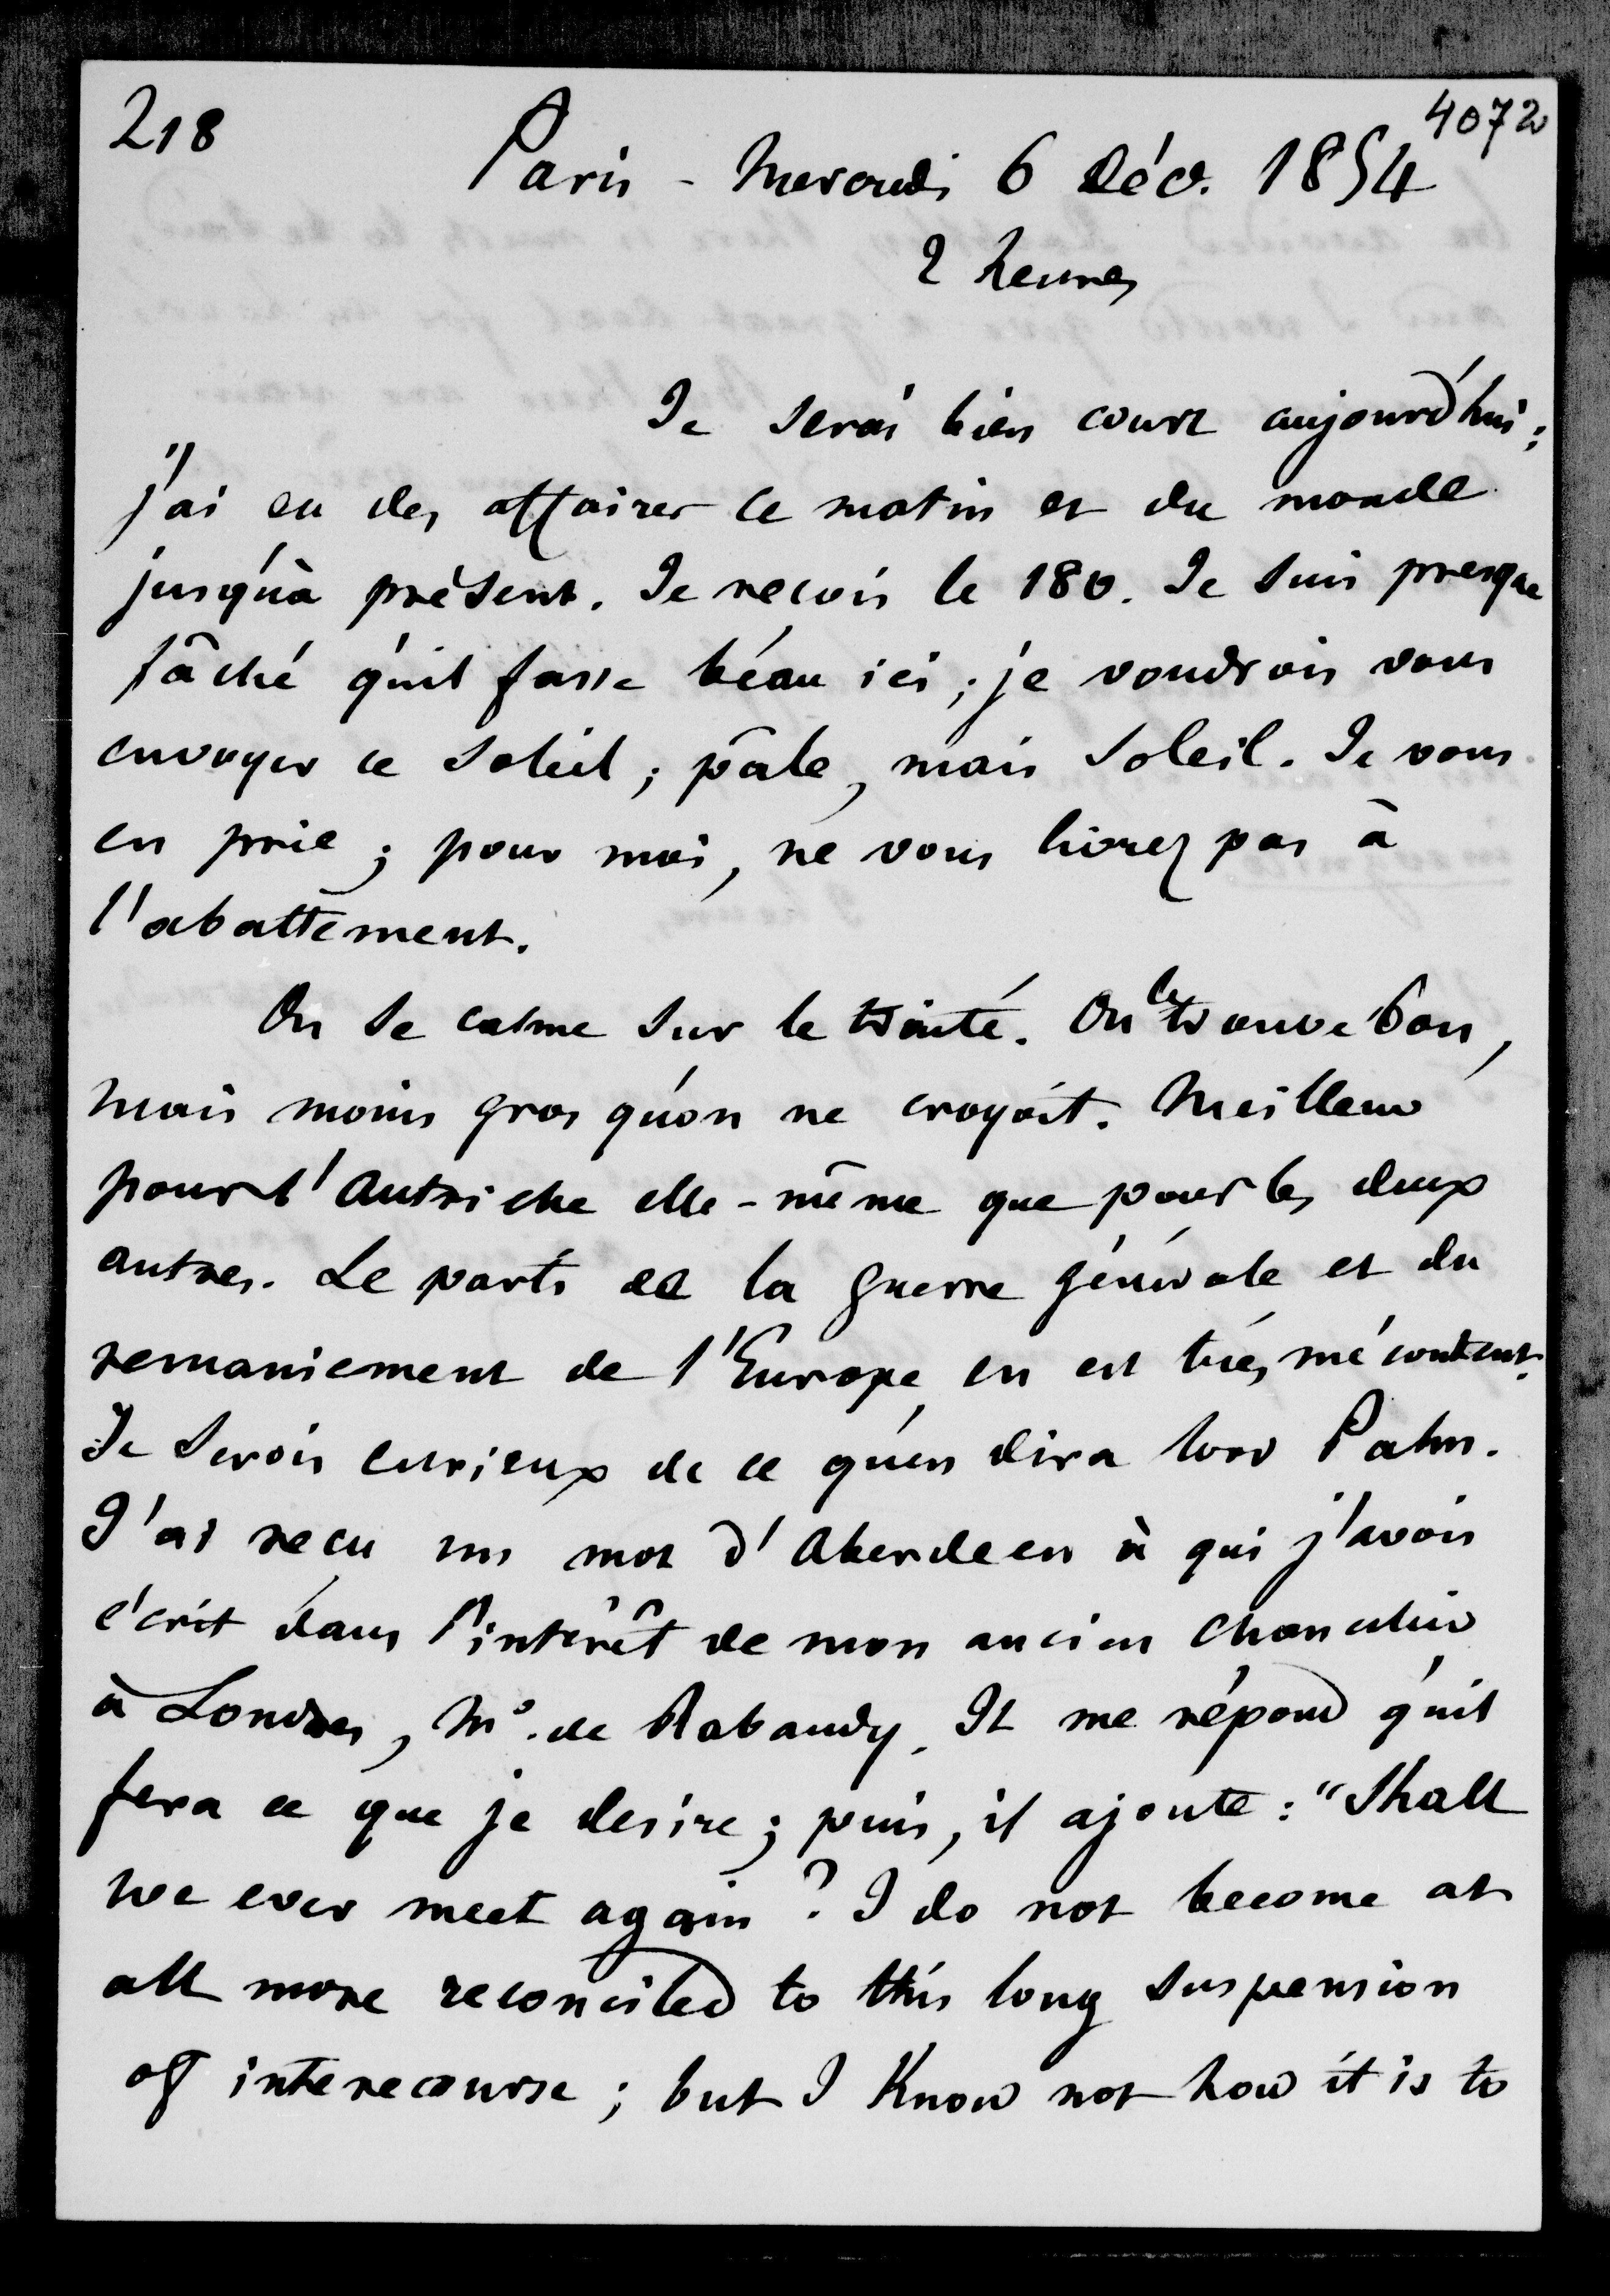 218
4072
Paris - Mercredi 6 Déc. 1854
2 heures
Je serai bien court aujourd'hui;
j'ai eu des affaires ce matin et du monde
jusqu'à présent. Je reçois le 180. Je suis presque
fâché qu'il fasse beau ici; je voudrois vous
envoyer ce soleil; pâle, mais soleil. Je vous
en prie; pour moi, ne vous livrez pas à
l'abattement.
On se calme sur le traité. On le trouve bon,
mais moins gros qu'on ne croyoit. Meilleur
pour l'Autriche elle-même que pour les deux
autres. Le parti de la guerre générale et du
remaniement de l'Europe en est très mécontent.
Je serois curieux de ce qu'en dira lord Palm.
J'ai reçu un mot d'Aberdeen à qui j'avois
écrit dans l'intérêt de mon ancien chancelier
à Londres, Mr. de Rabaudy. Il me répond qu'il
fera ce que je desire; puis, il ajoute: "Shall
we ever meet again? I do not become at
all more reconciled to this long suspension
of interecourse; but I know not how it is to